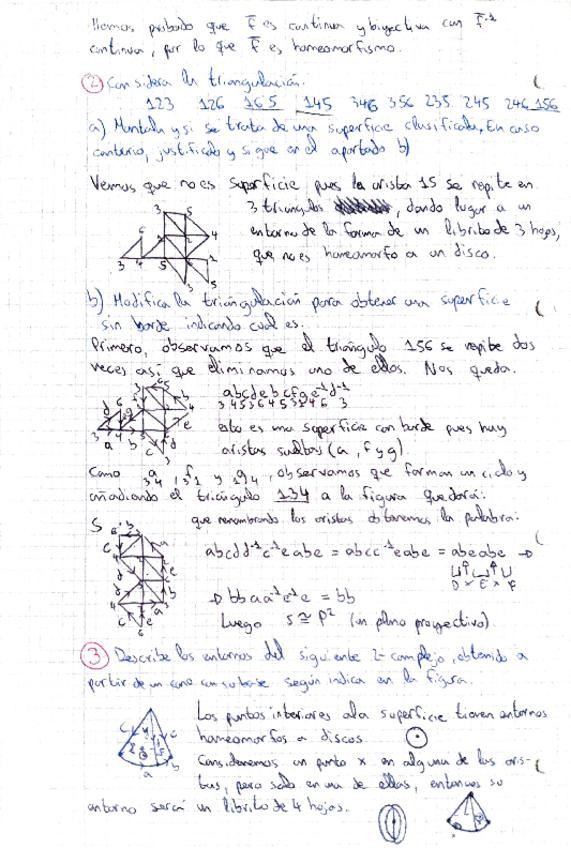 Hemos probado que F̄ es continua y biyectiva con F̄⁻¹
continua, por lo que F̄ es homeomorfismo.
② Considera la triangulación.
123 126 165 145 346 356 235 245 246 156
a) Montala y si se trata de una superficie clasificala. En caso
contrario, justificalo y sigue en el apartado b)
Vemos que no es superficie pues la arista 15 se repite en
3 triangulos, dando lugar a un
entorno de la forma de un librito de 3 hojas,
que no es homeomorfo a un disco.
b) Modifica la triangulación para obtener una superficie
sin borde indicando cual es.
Primero, observamos que el triángulo 156 se repite dos
veces así que eliminamos uno de ellos. Nos queda.
a b c d e b c f g e⁻¹ d⁻¹
esto es una superficie con borde pues hay
aristas sueltas (a, f y g).
Como a, f y g, observamos que forman un ciclo y
añadiendo el triángulo 134 a la figura quedará:
S
que renombrando las aristas obtenemos la palabra:
abcdd⁻¹c⁻¹eabe = abcc⁻¹eabe = abeabe →
→ bbaa⁻¹e⁻¹e = bb
Luego S ≅ P² (un plano proyectivo).
③ Describe los entornos del siguiente 2-complejo, obtenido a
partir de un cono con su base según indica en la figura.
Los puntos interiores a la superficie tienen entornos
homeomorfos a discos.
Consideremos un punto x en alguna de las aris-
tas, pero solo en una de ellas, entonces su
entorno será un librito de 4 hojas.